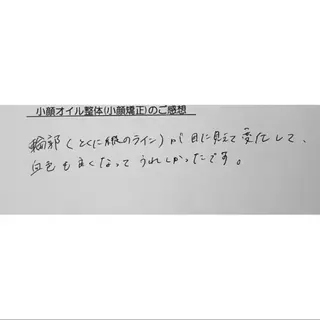 小顔オイル整体(小顔矯正)のご感想
輪郭(とくに顔のライン)が目に見えて変化して、
血色も良くなってうれしかったです。